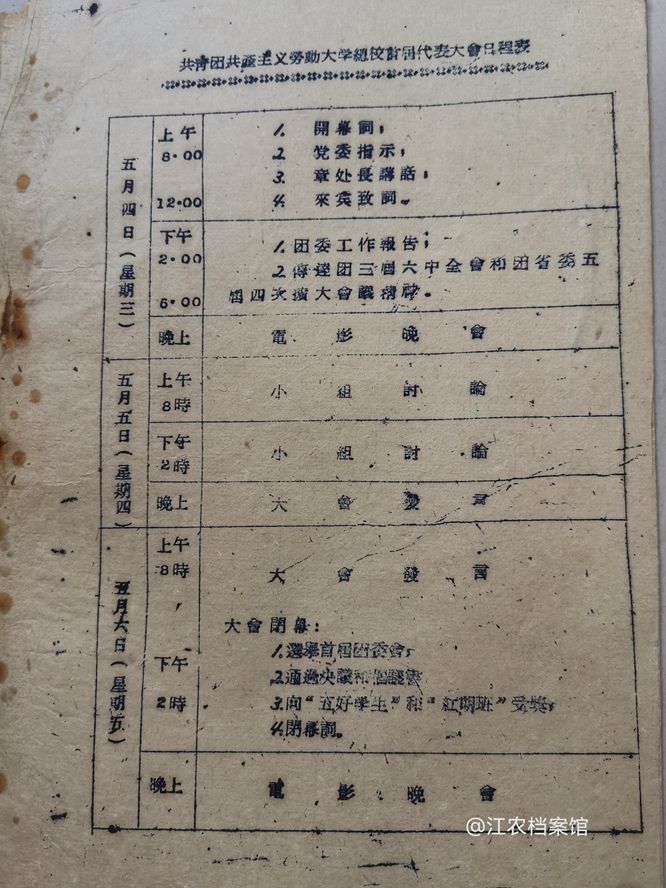 共青团共產主义勞動大学總校首届代表大會日程表
五月四日(星期三)
上午
8·00
12·00
1. 開幕詞；
2 党委指示；
3. 章处長講話；
4. 來宾致詞。
下午
2·00
6·00
1.团委工作報告；
2.傳達团三届六中全會和团省委五
届四次擴大會議精神。
晚上
電影晚會
五月五日(星期四)
上午
8時
小組討論
下午
2時
小組討論
晚上
大會發言
五月六日(星期五)
上午
8時
大會發言
下午
2時
大會閉幕：
1.選舉首届团委會；
2.通過决議和倡議書
3.向“五好学生”和“紅旗班”受獎；
4.閉幕詞。
晚上
電影晚會
@江农档案馆